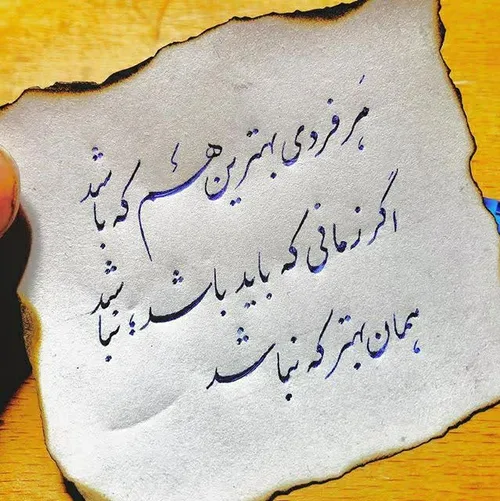 هَر فردی بهترین هم که باشد
اگر زمانی که باید باشد؛ نباشد
همان بهتر که نباشد